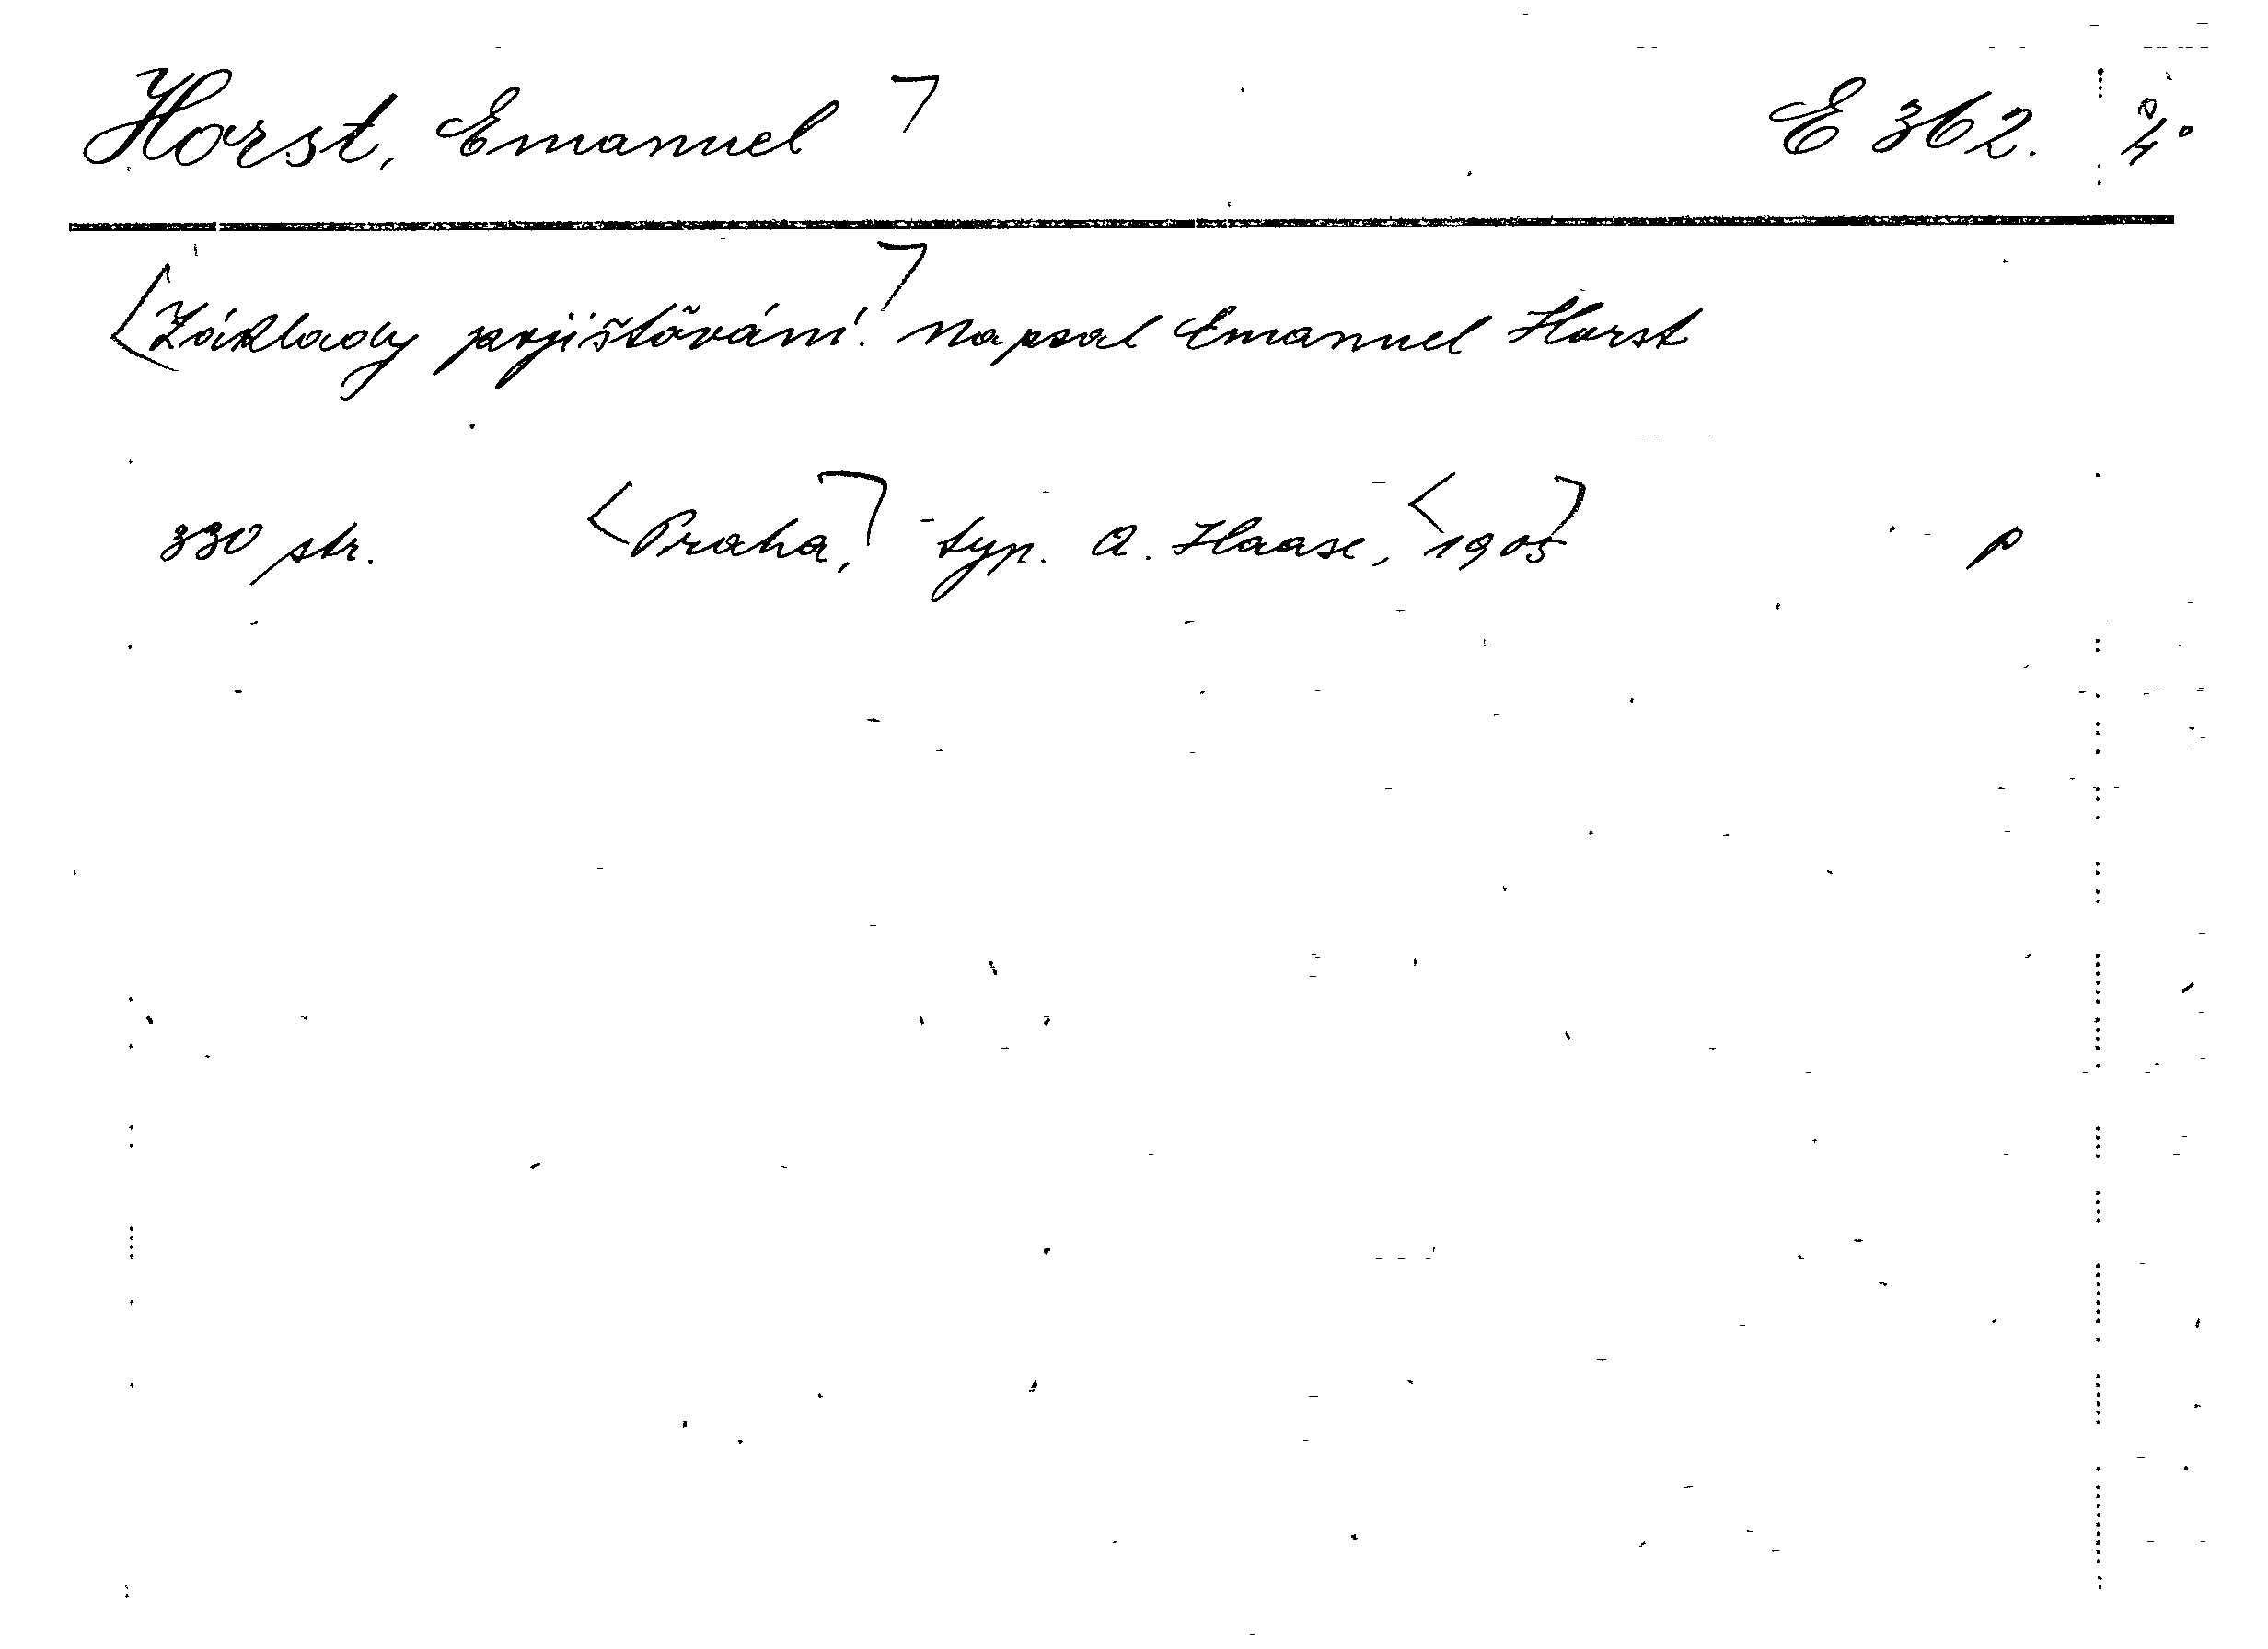 Horst, Emanuel E 362. 4°
Základy pojišťování. Napsal Emanuel Horst
330 str. Praha, typ. A. Haase, 1905 p